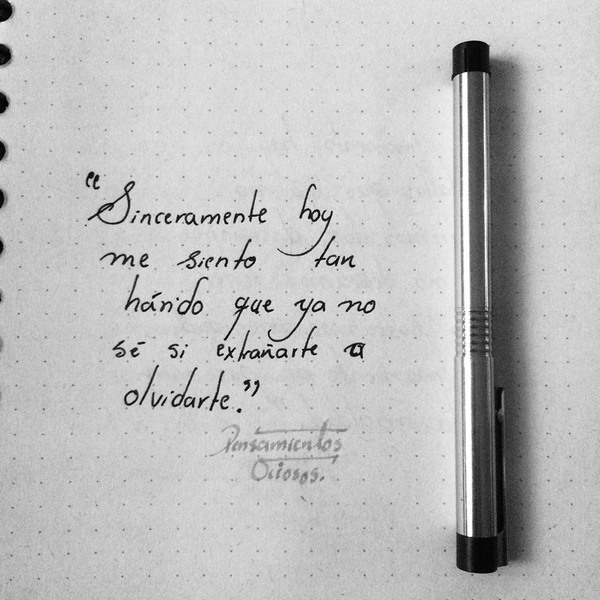 “Sinceramente hoy
me siento tan
hárido que ya no
sé si extrañarte a
olvidarte.”
Pensamientos
Ociosos.